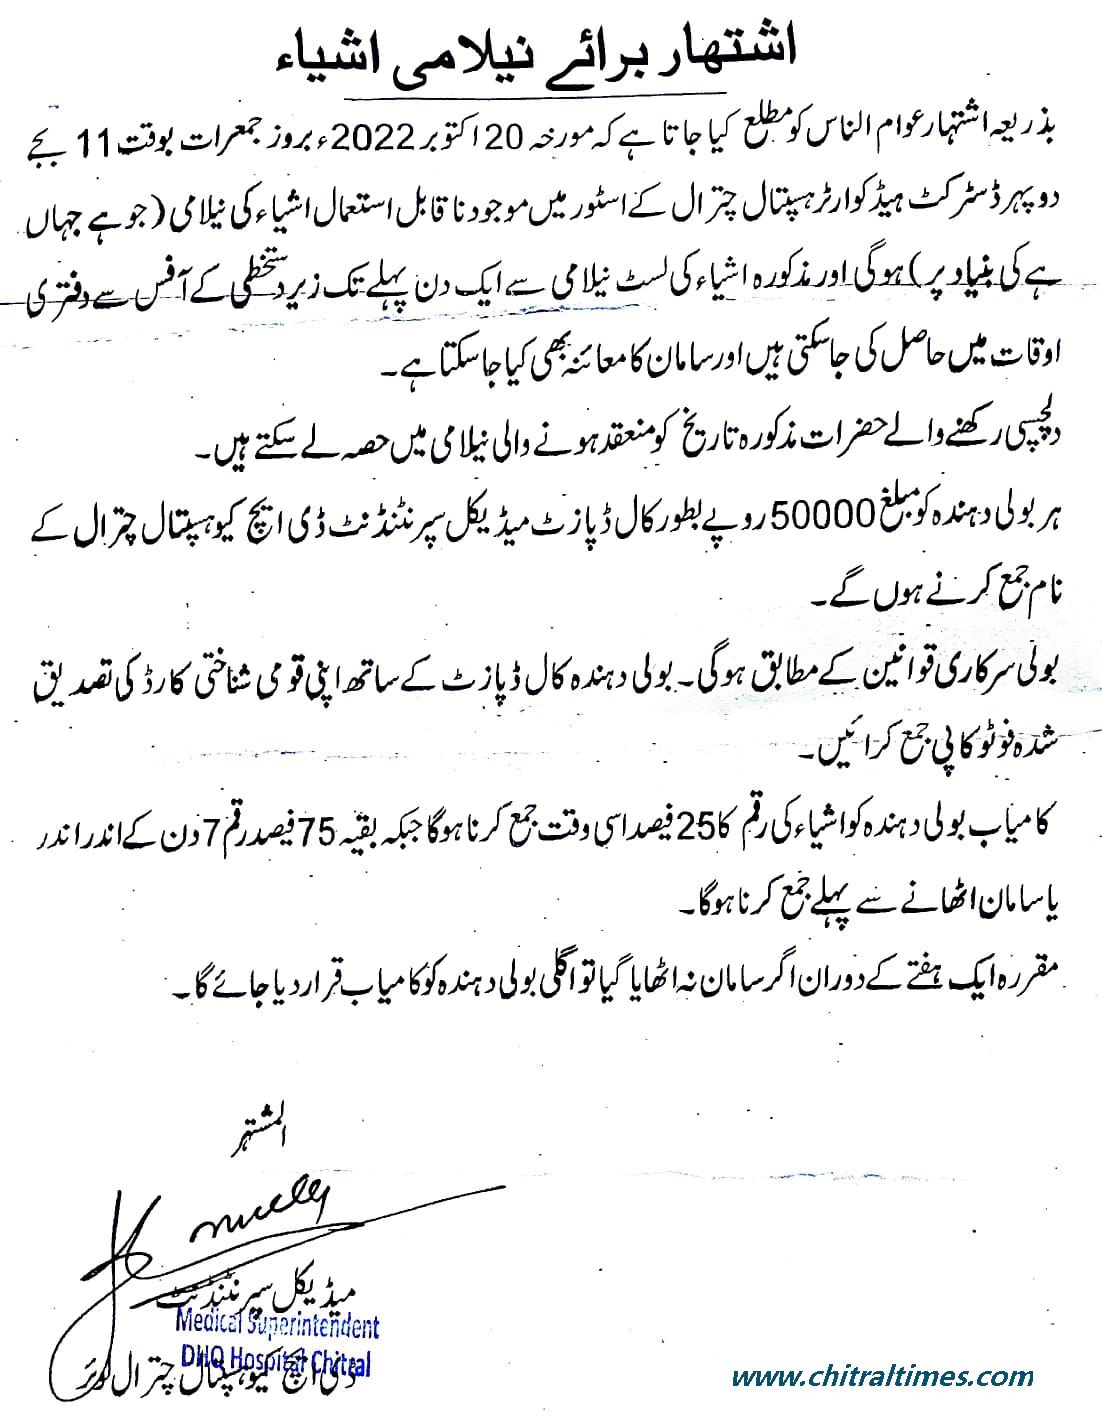 اشتہار برائے نیلامی اشیاء
بذریعہ اشتہار عوام الناس کو مطلع کیا جاتا ہے کہ مورخہ 20 اکتوبر 2022ء بروز جمعرات بوقت 11 بجے
دوپہر ڈسٹرکٹ ہیڈکوارٹر ہسپتال چترال کے اسٹور میں موجود ناقابل استعمال اشیاء کی نیلامی (جو ہے جہاں
ہے کی بنیاد پر) ہوگی اور مذکورہ اشیاء کی لسٹ نیلامی سے ایک دن پہلے تک زیر دستخطی کے آفس سے دفتری
اوقات میں حاصل کی جاسکتی ہیں اور سامان کا معائنہ بھی کیا جاسکتا ہے۔
دلچسپی رکھنے والے حضرات مذکورہ تاریخ کو منعقد ہونے والی نیلامی میں حصہ لے سکتے ہیں۔
ہر بولی دہندہ کو مبلغ 50000 روپے بطور کال ڈپازٹ میڈیکل سپرنٹنڈنٹ ڈی ایچ کیو ہسپتال چترال کے
نام جمع کرنے ہوں گے۔
بولی سرکاری قوانین کے مطابق ہوگی۔ بولی دہندہ کال ڈپازٹ کے ساتھ اپنی قومی شناختی کارڈ کی تصدیق
شدہ فوٹو کاپی جمع کرائیں۔
کامیاب بولی دہندہ کو اشیاء کی رقم کا 25 فیصد اسی وقت جمع کرنا ہوگا جبکہ بقیہ 75 فیصد رقم 7 دن کے اندر اندر
یا سامان اٹھانے سے پہلے جمع کرنا ہوگا۔
مقررہ ایک ہفتے کے دوران اگر سامان نہ اٹھایا گیا تو اگلی بولی دہندہ کو کامیاب قرار دیا جائے گا۔
المشتہر
میڈیکل سپرنٹنڈنٹ
Medical Superintendent
DHQ Hospital Chitral
ڈی ایچ کیو ہسپتال چترال لوئر
www.chitraltimes.com